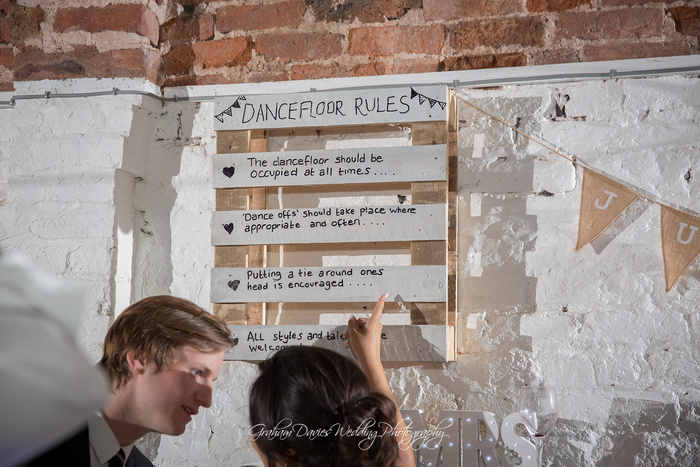 DANCEFLOOR RULES
The dancefloor should be
occupied at all times....
'Dance offs' should take place where
appropriate and often....
Putting a tie around ones
head is encouraged....
All styles and
J U
MRS
Graham Davies Wedding Photography